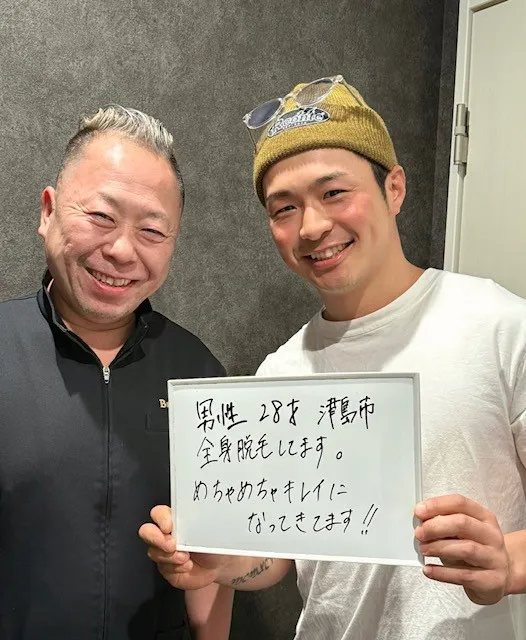 男性 28才 津島市
全身脱毛してます。
めちゃめちゃキレイに
なってきてます!!